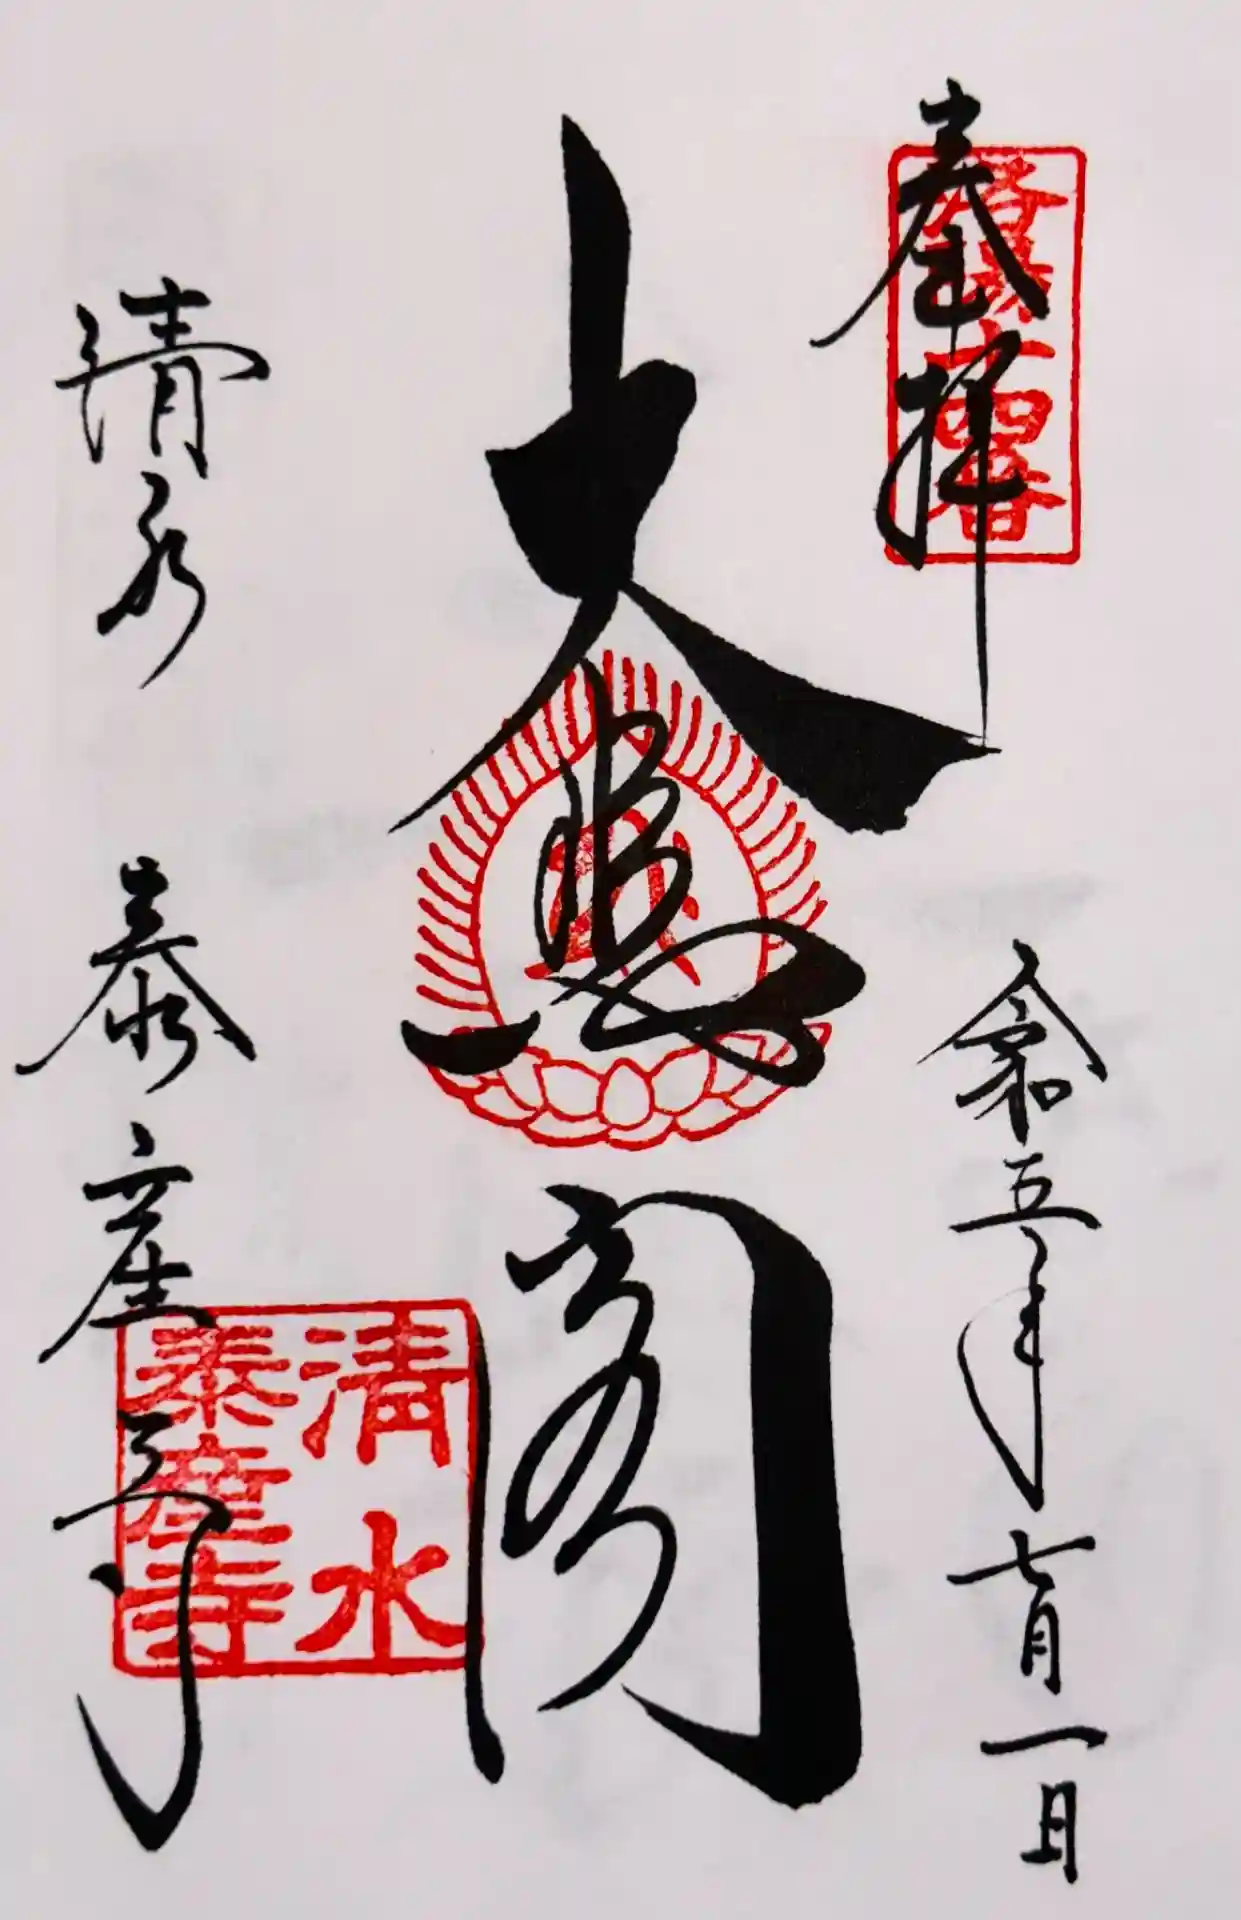 奉拝
洛陽十四番
令和五年七月一日
大悲閣
清水 泰産寺
清水
泰産寺